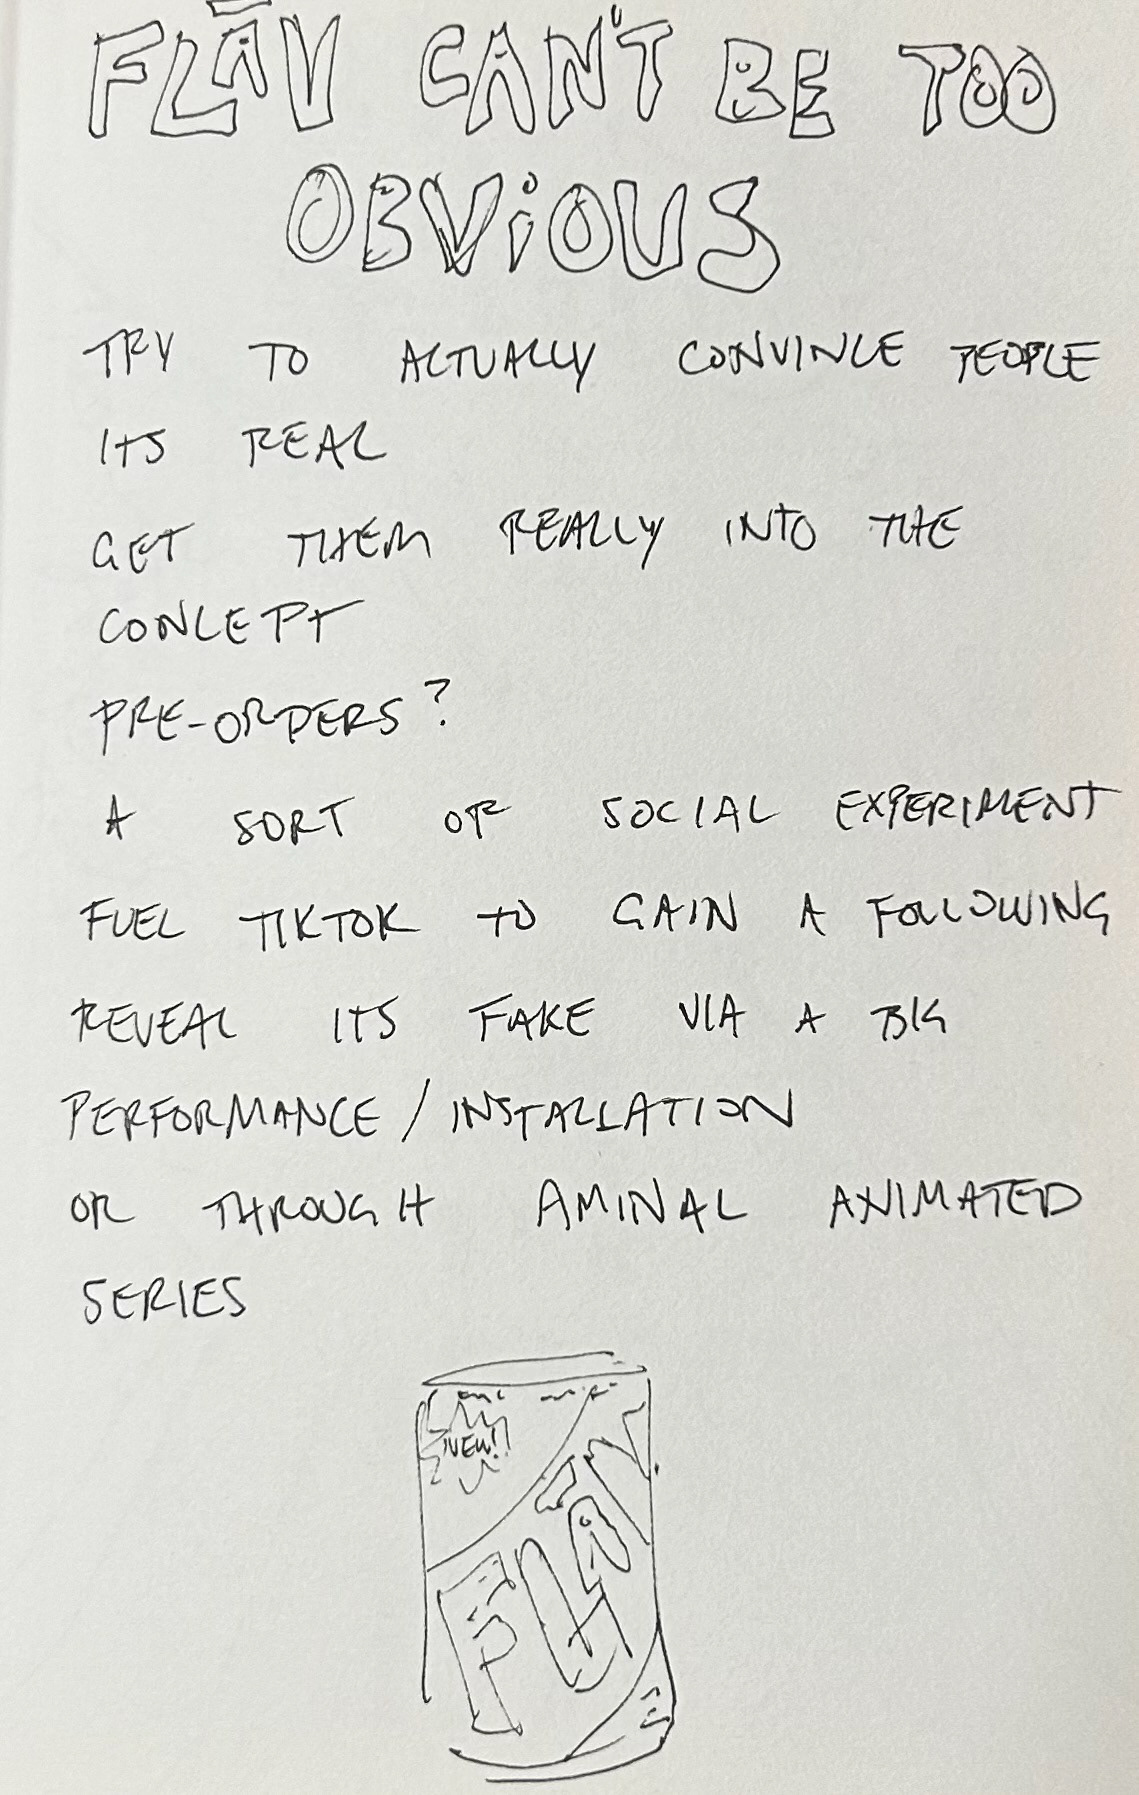 FLĀV CAN'T BE TOO
OBViOUS
TRY TO ACTUALLY CONVINCE PEOPLE
ITS REAL
GET THEM REALLY INTO THE
CONCEPT
PRE-ORDERS?
A SORT OF SOCIAL EXPERIMENT
FUEL TIKTOK TO GAIN A FOLLOWING
REVEAL ITS FAKE VIA A BIG
PERFORMANCE/INSTALLATION
OR THROUGH AMINAL ANIMATED
SERIES
NEW!
FLĀV